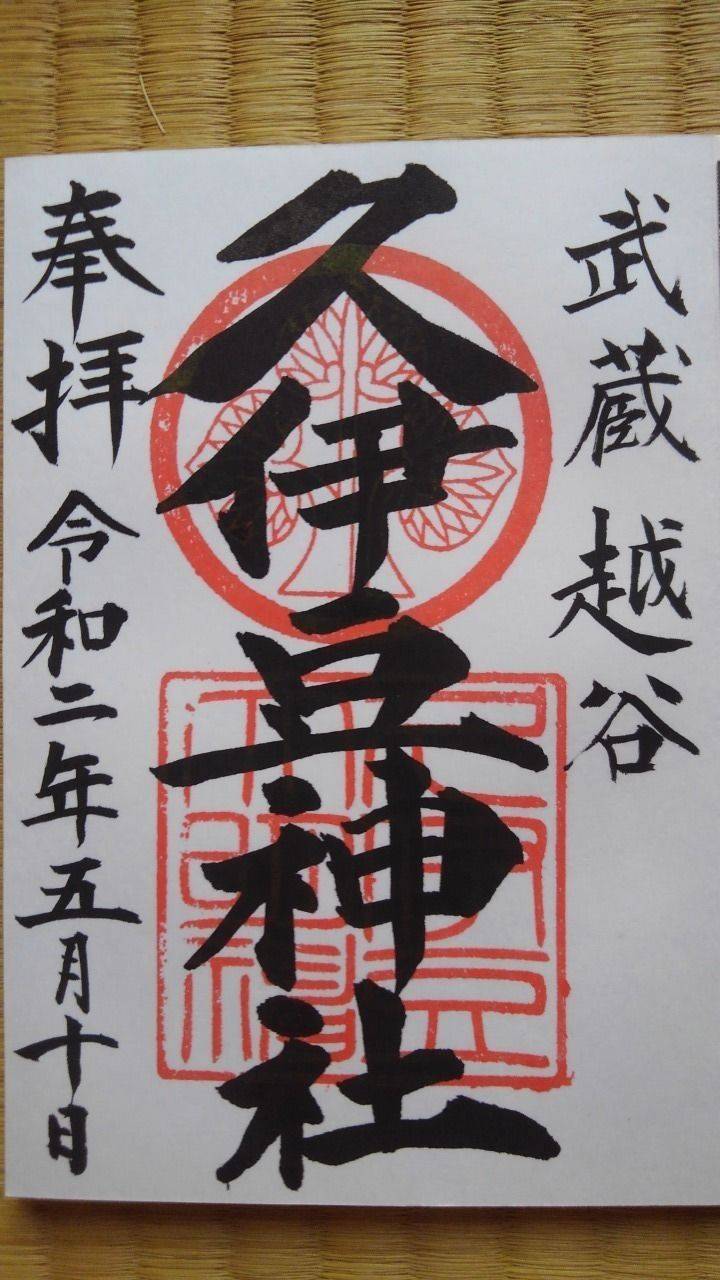 武蔵越谷
久伊豆神社
奉拝 令和二年五月十日